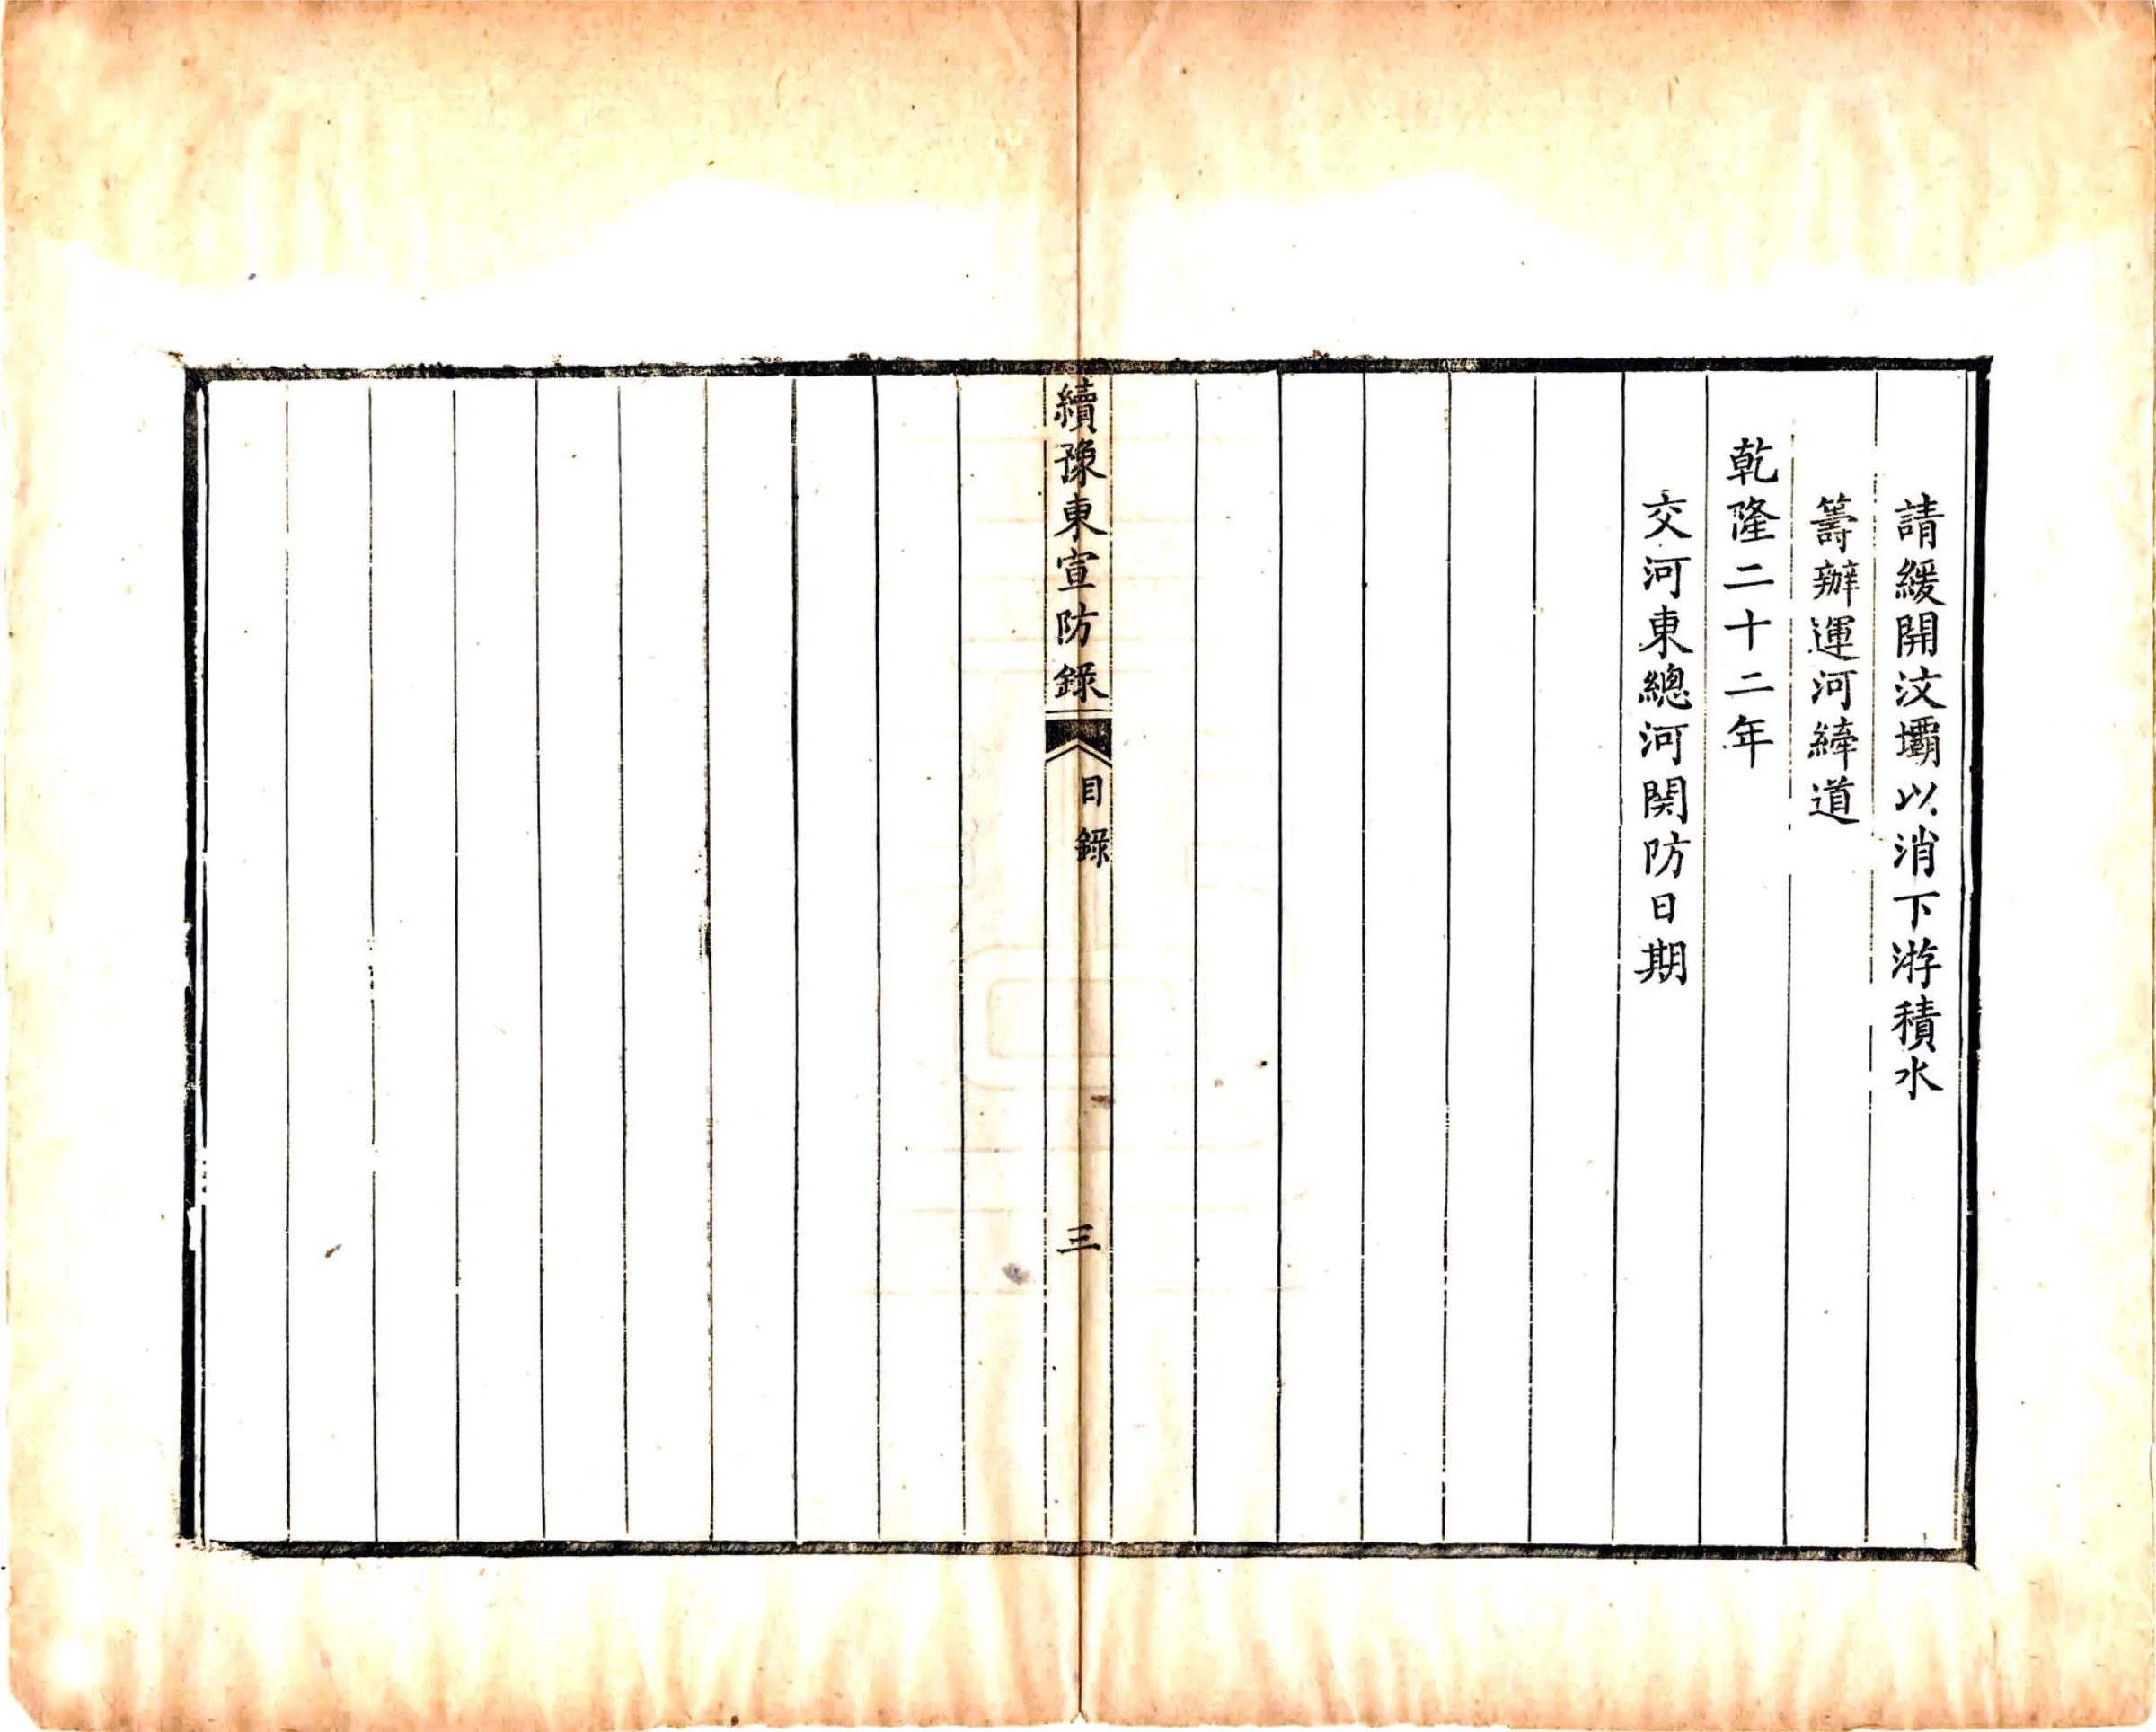 請緩開汶壩以消下游積水
籌辦運河縴道
乾隆二十二年
交河東總河関防日期
續豫東宣防錄
目錄
三